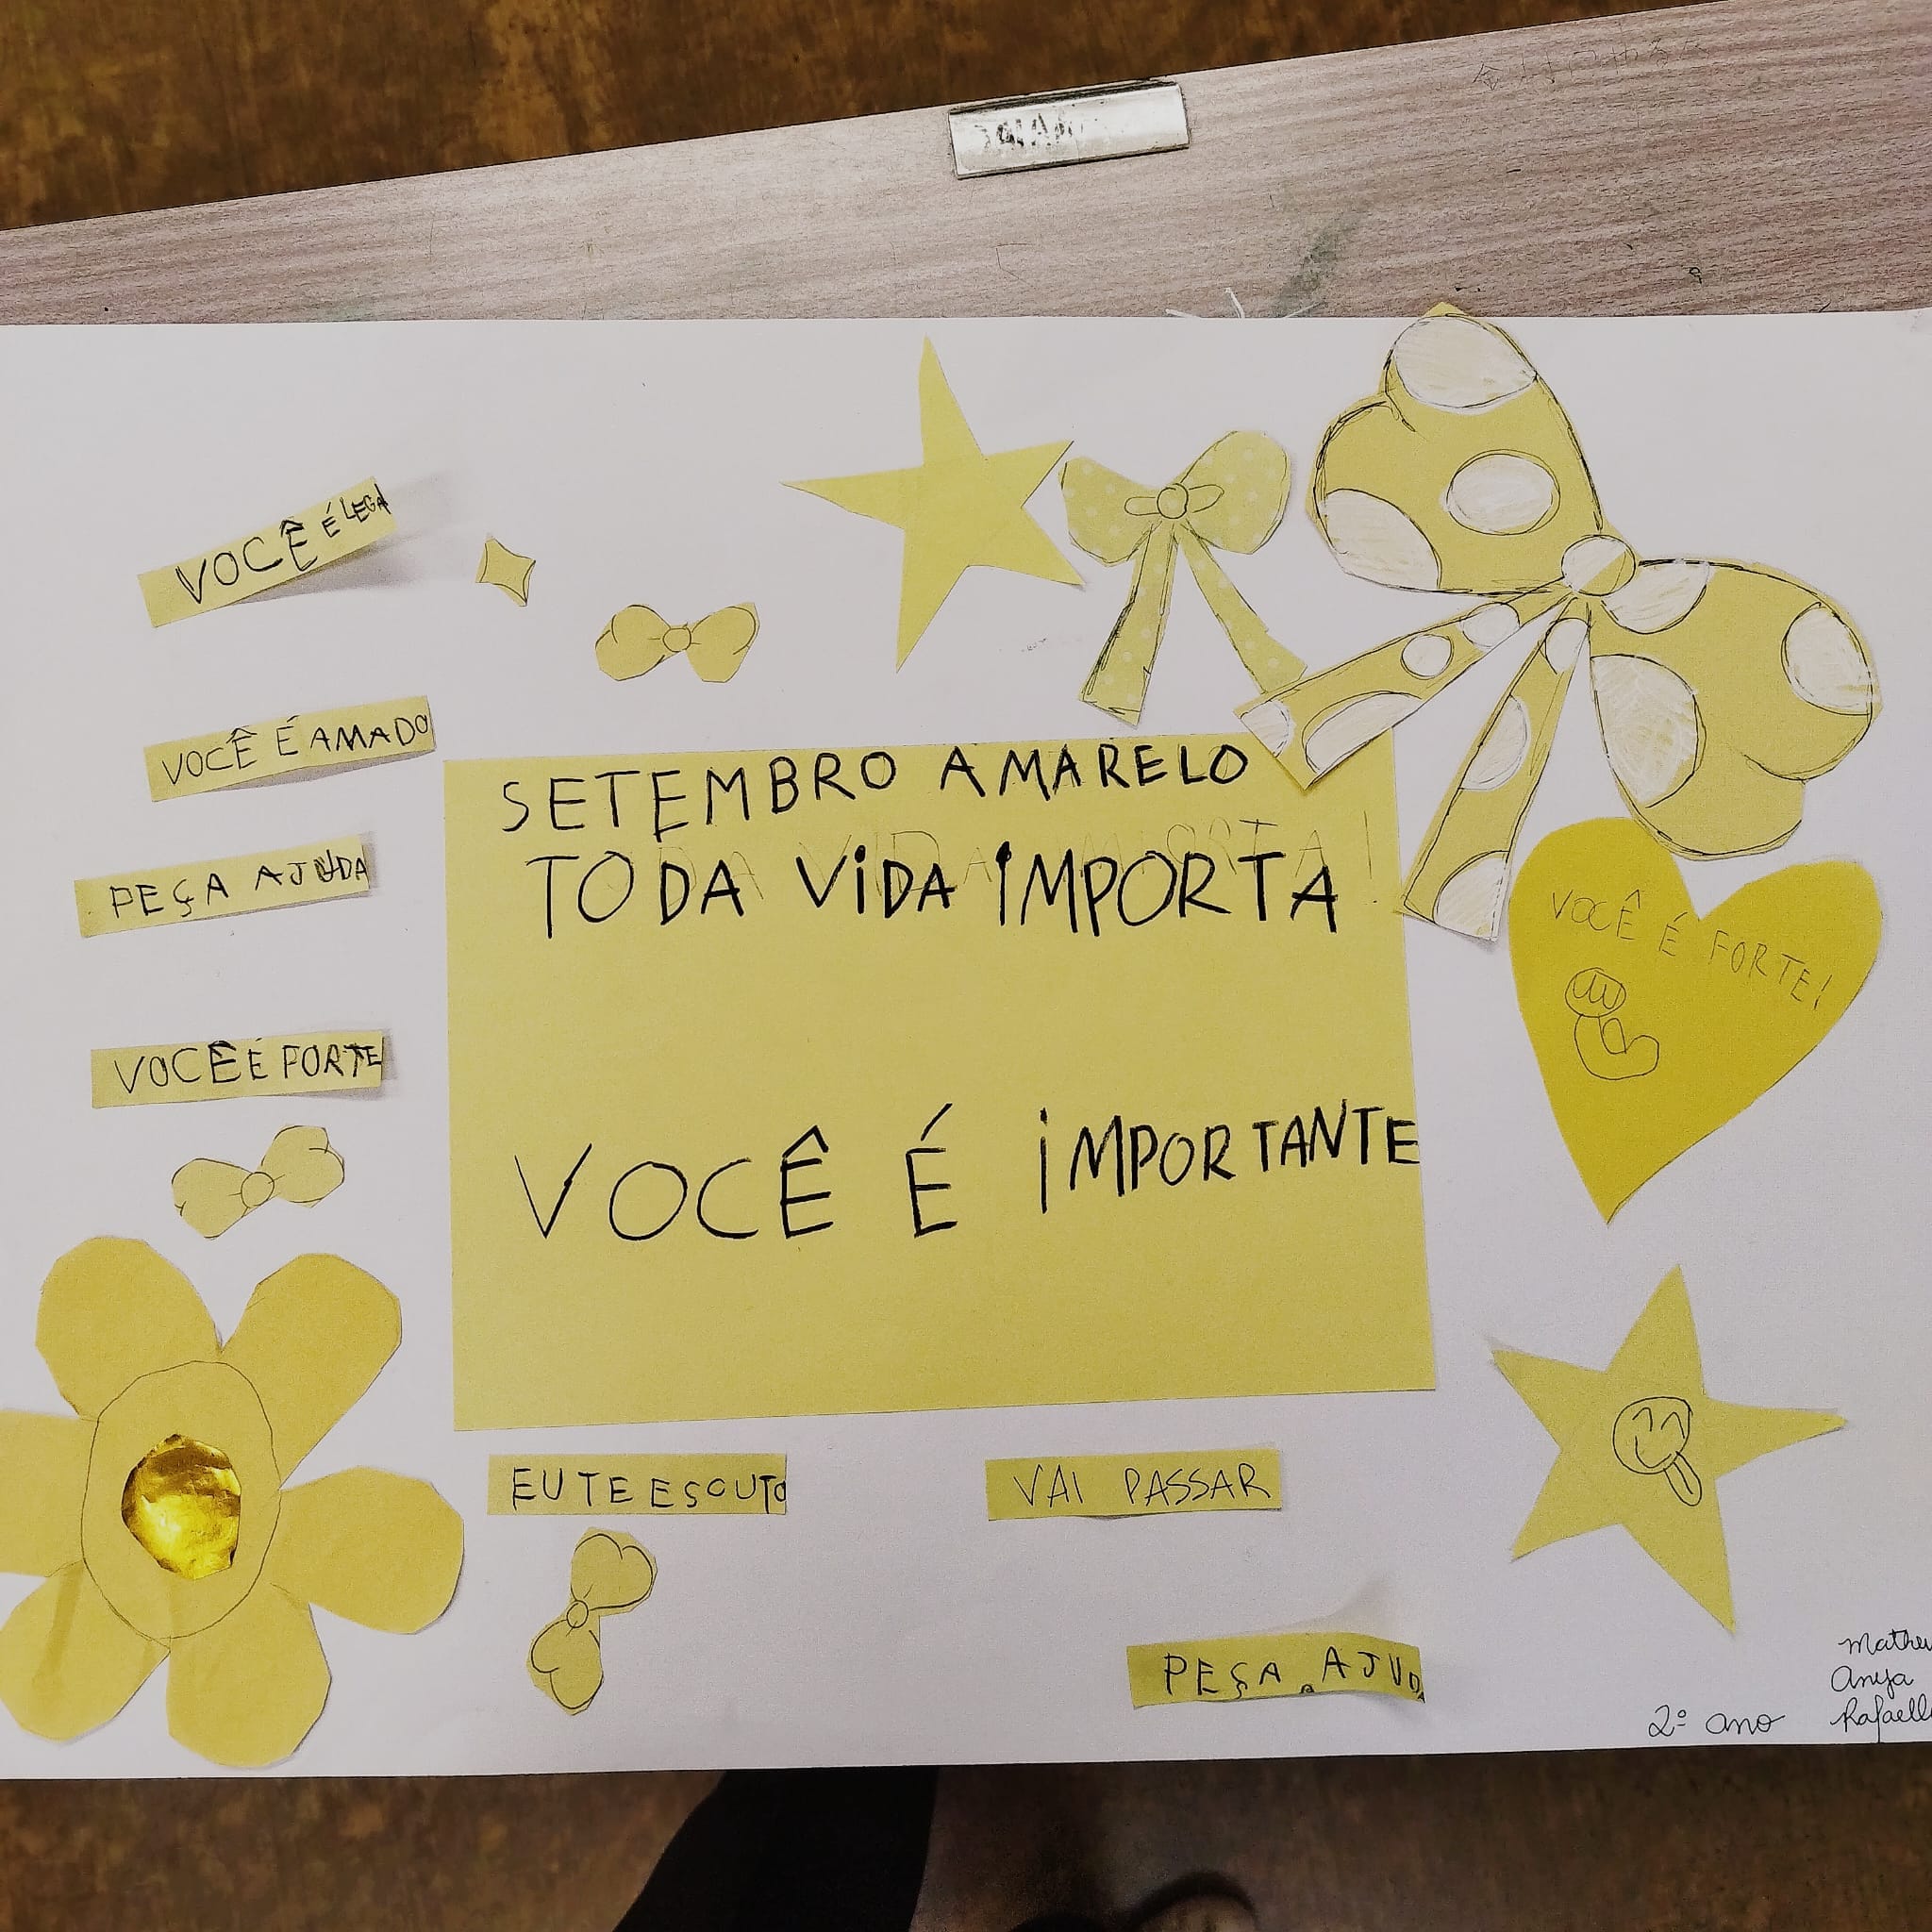 VOCÊ É LEGAL
VOCÊ É AMADO
PEÇA AJUDA
VOCÊ É FORTE
SETEMBRO AMARELO
TODA VIDA IMPORTA
VOCÊ É IMPORTANTE
VOCÊ É FORTE!
EU TE ESCUTO
VAI PASSAR
PEÇA AJUDA
2º ano